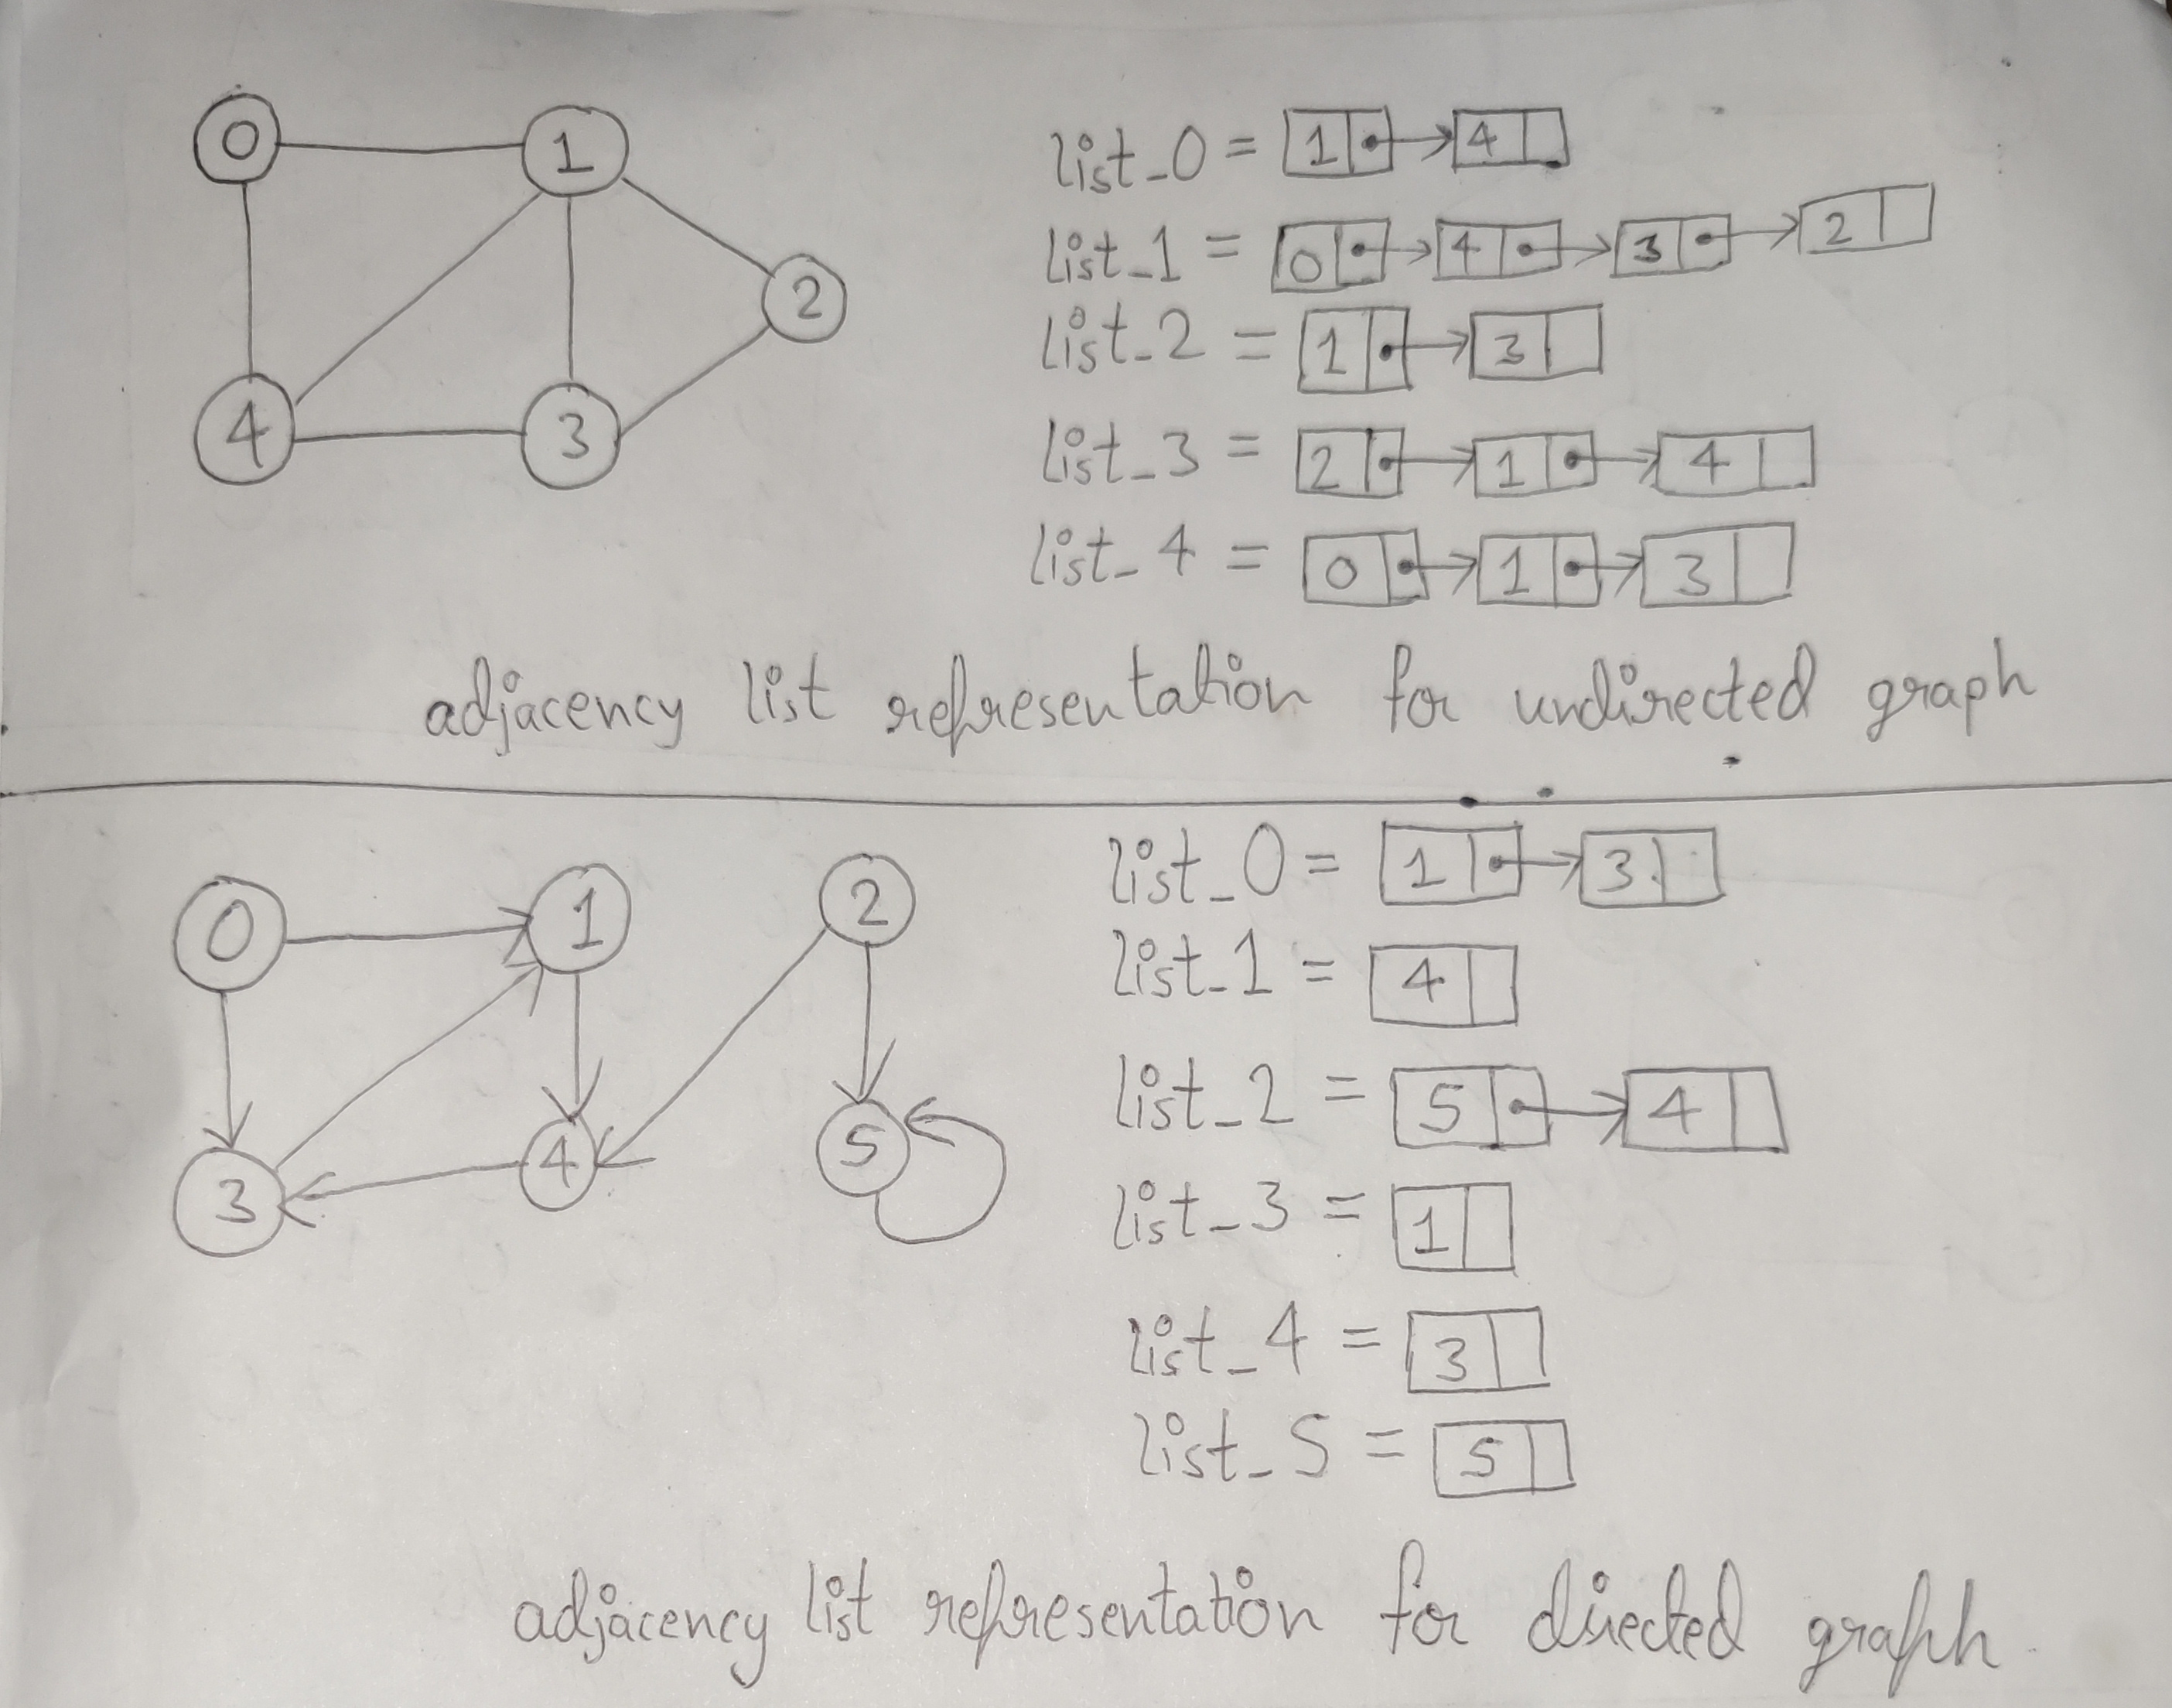 0 1
2
4 3
list_0 = 1 4
list_1 = 0 4 3 2
list_2 = 1 3
list_3 = 2 1 4
list_4 = 0 1 3
adjacency list representation for undirected graph
0 1 2
3 4 5
list_0 = 1 3
list_1 = 4
list_2 = 5 4
list_3 = 1
list_4 = 3
list_5 = 5
adjacency list representation for directed graph